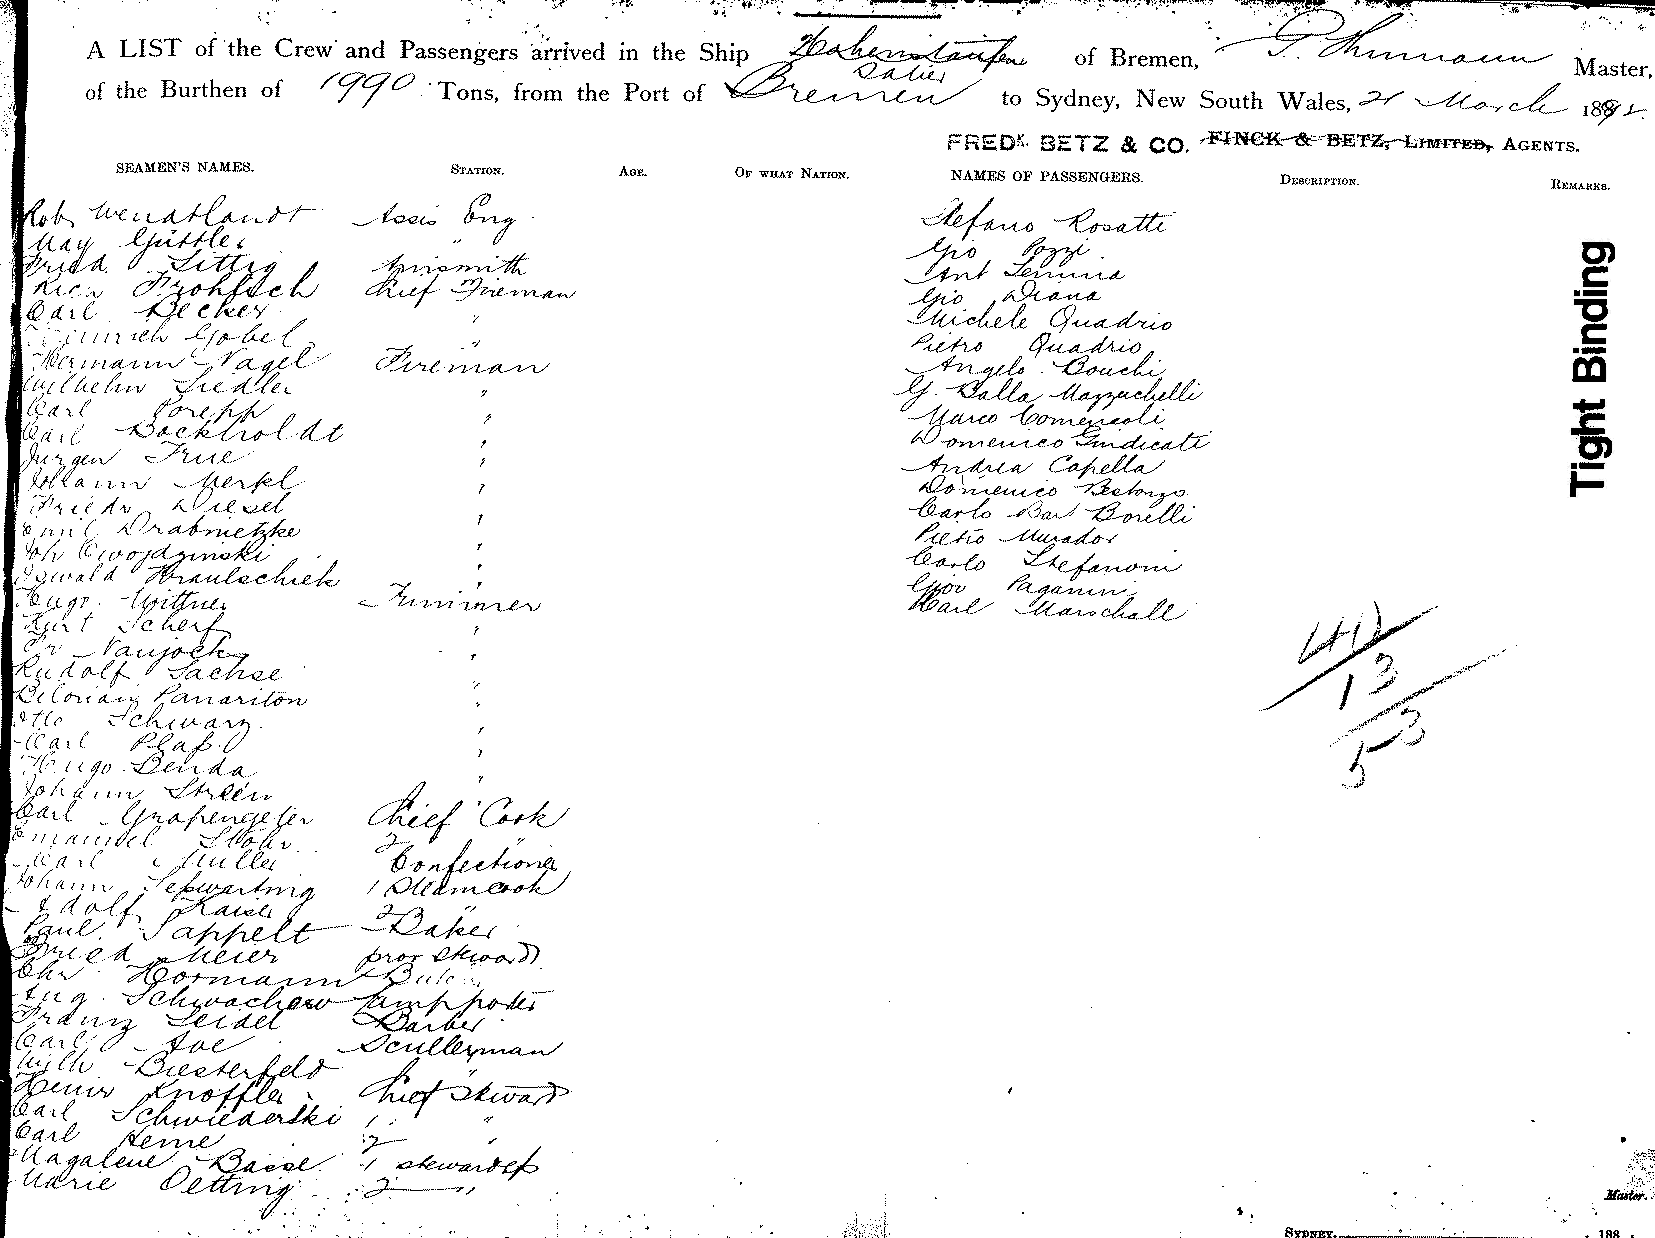 A LIST of the Crew and Passengers arrived in the Ship Hohenstaufen of Bremen, P. Thumann Master,
Salier
of the Burthen of 1990 Tons, from the Port of Bremen to Sydney, New South Wales, 21 March 1892.
FREDK. BETZ & CO. FINCK & BETZ, LIMITED, AGENTS.
SEAMEN'S NAMES. STATION. AGE. OF WHAT NATION. NAMES OF PASSENGERS. DESCRIPTION. REMARKS.
Rob Assis Eng Stefano Rosatti
May Güttler " Gio Pozzi
Fried. Sittig Ant
Rich Frohlsch Chief Fireman Gio Diana
Carl Becker " Michele Quadrio
Heinrich Gobel " Pietro Quadrio
Hermann Nagel Fireman Angelo Bouchi
Wilhelm Siedler " G. Dalla Mazzuchelli
Carl Porepp " Marco
Carl Bockholdt " Domenico Giudicati
Jurgen True " Andrea Capella
Johann Merkl " Domenico
Friedr Diesel " Carlo Bat Borelli
Emil Drabnietzke " Pietro Murador
Joh Cwojdzinski " Carlo Stefanoni
Oswald Kraulschiek " Giov Paganin
Hugo Wittner Trimmer Karl Marschall
Kurt Scherf "
Fr Naujock "
Rudolf Sachse
Panariton "
Otto Schwarz "
Carl Plaß "
Hugo Benda "
Johann Streen "
Carl Grapengeter Chief Cook
Emanuel Stohr 2 "
Carl Muller Confectioner
Johann 1 Steamcook
Adolf Kaiser 2 "
Paul Sappelt Baker
Fried Meier prov steward
Chr Hormann
Aug. Schwachow Lamp porter
Franz Seidel Barber
Carl Aue Scullerman
Wilh Biesterfeld "
Heinr Knoffler Chief Steward
Carl Schwiederski 1 "
Carl Heine 2
Magalene Basse 1 stewardess
Marie Oetting 2 "
40
13
53
Tight Binding
Master.
SYDNEY, 188 .